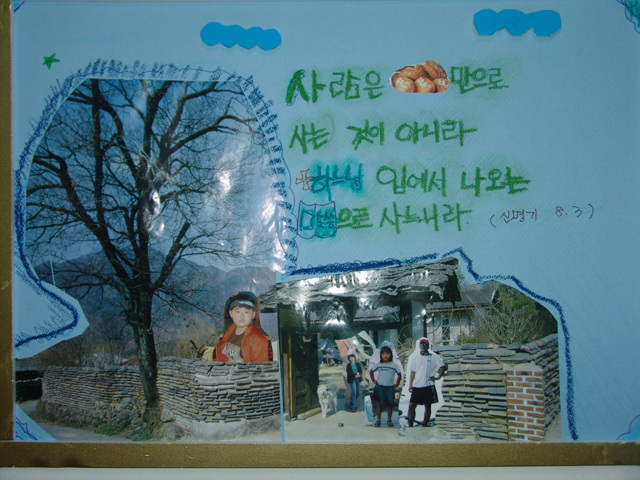 사람은 만으로
사는 것이 아니라
하나님 입에서 나오는
말씀으로 사느니라
(신명기 8.3)